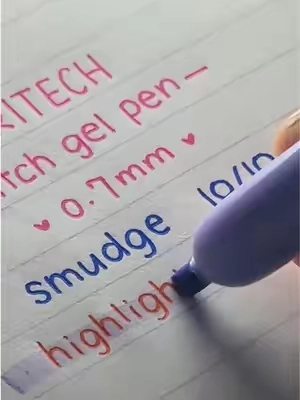 ITECH
tch gel pen—
♥ 0.7mm ♥
smudge 10/10
highligh